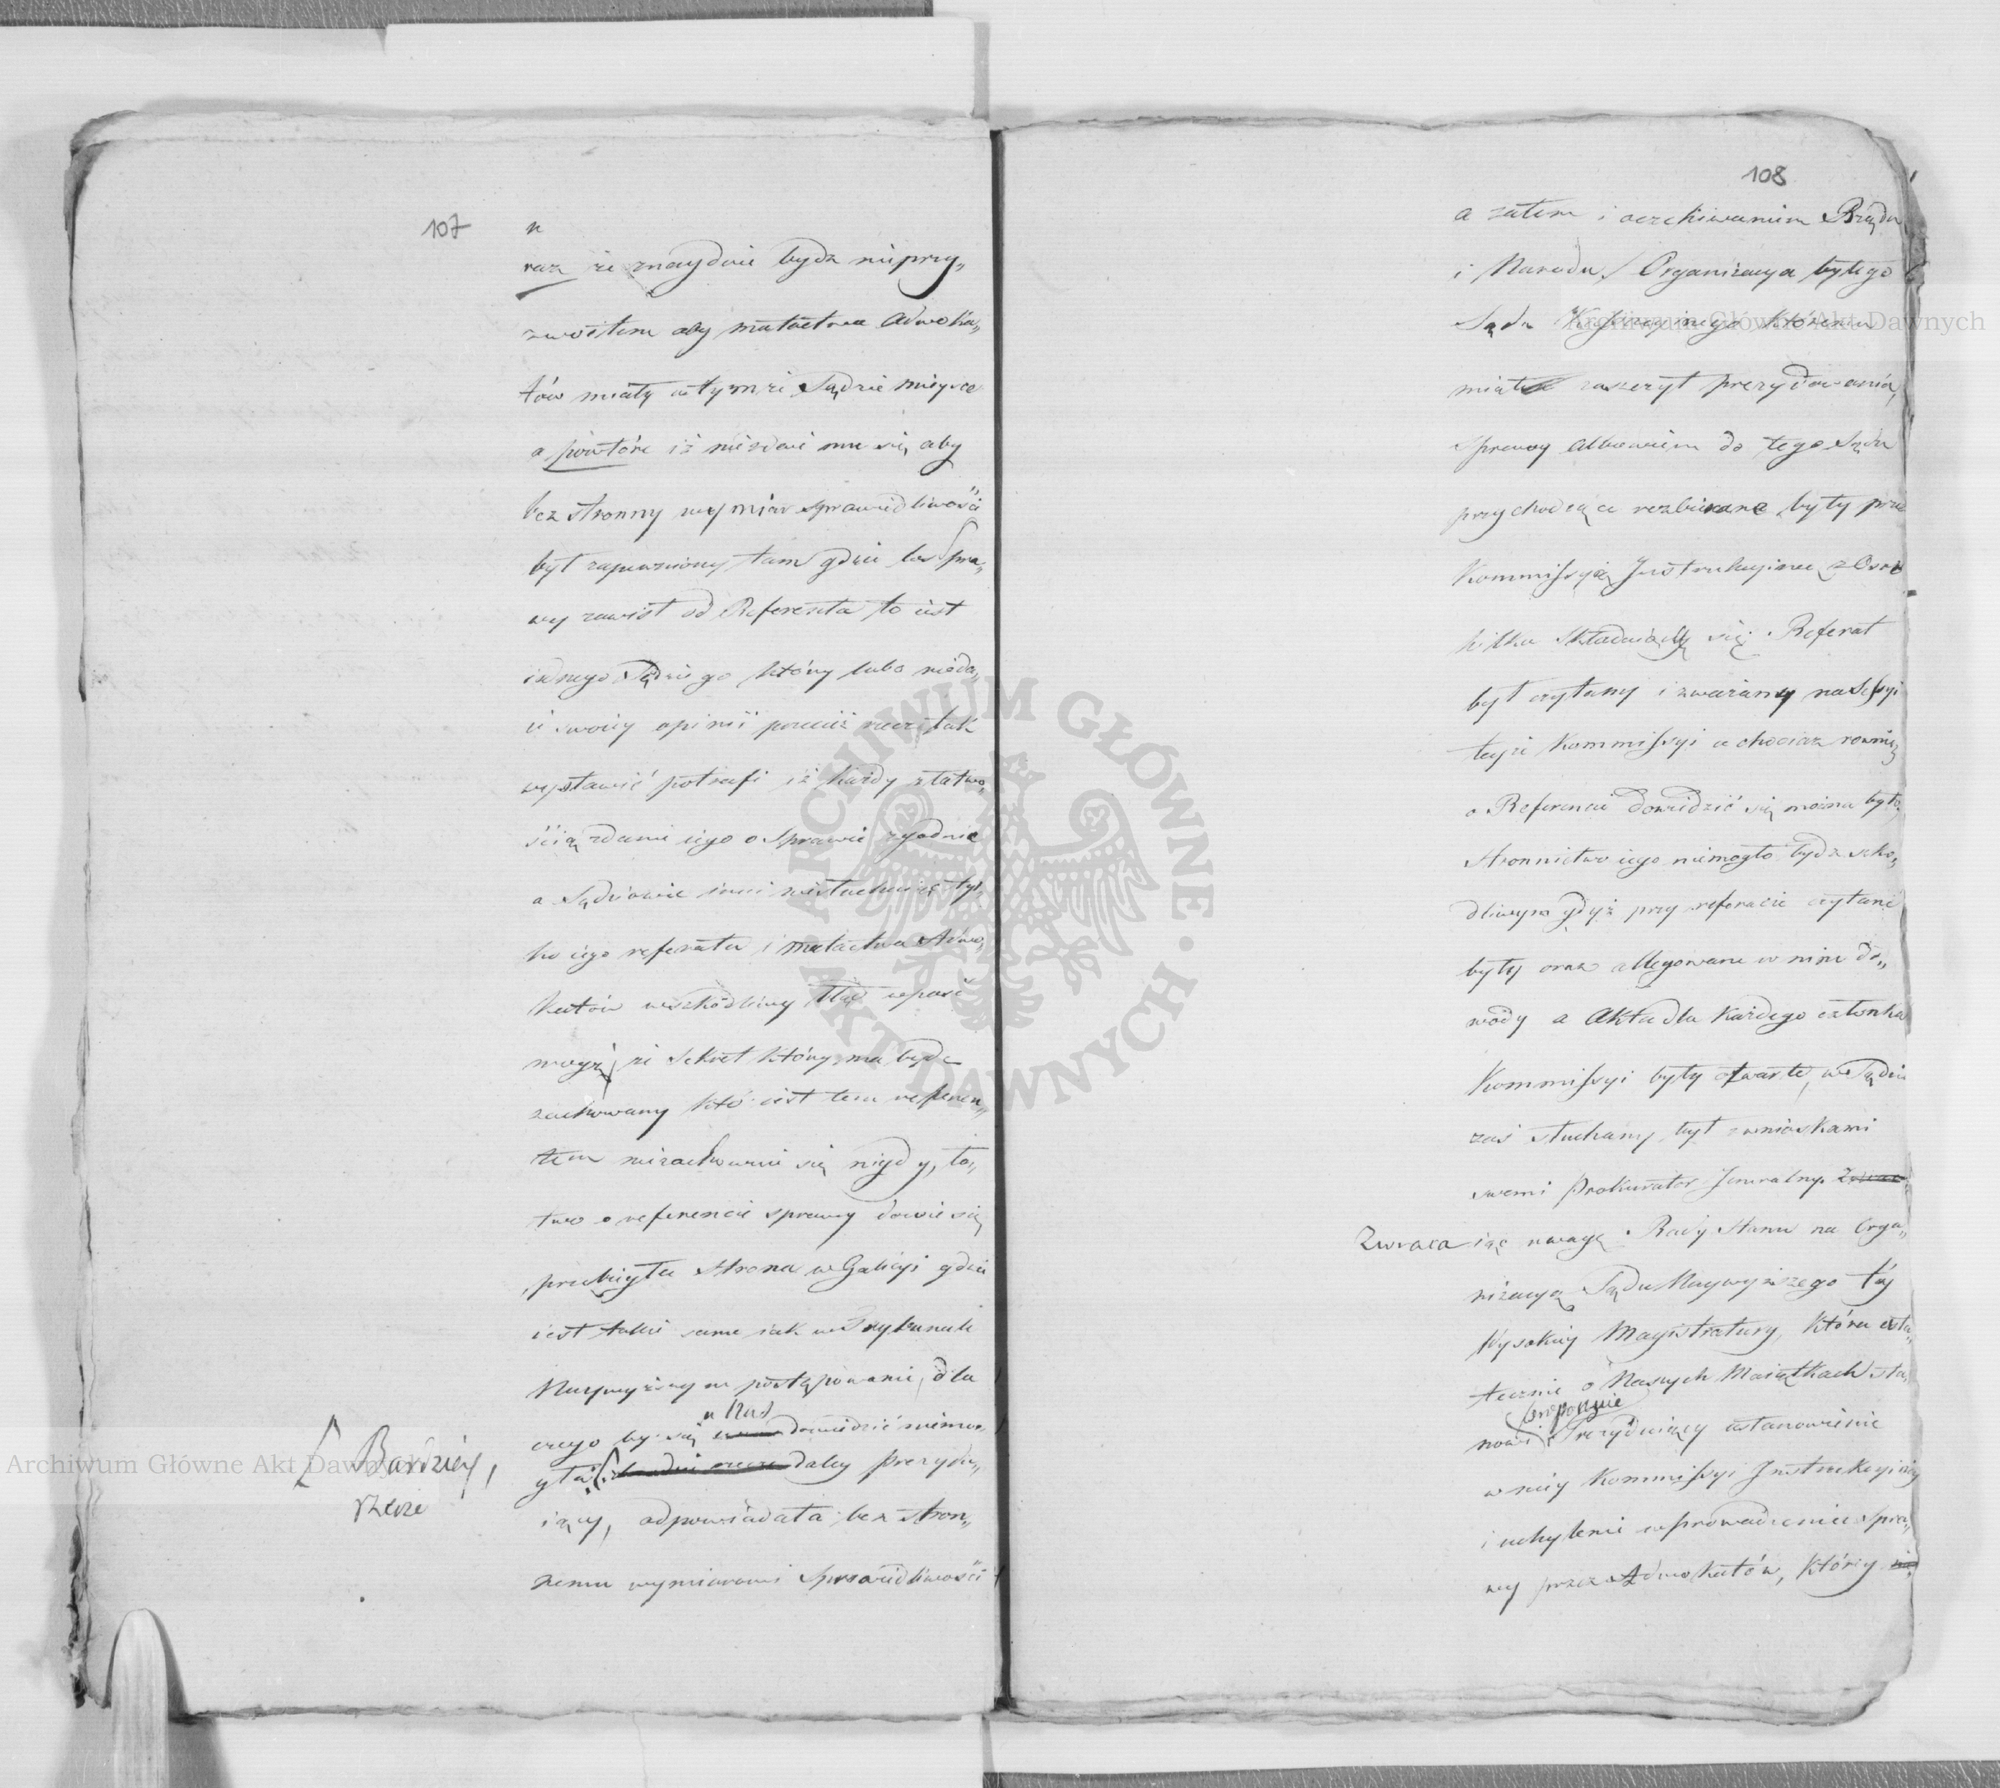 107
raz że znayduie bydź nieprzy„
zwoitem aby matactwa Adwoka„
tów miały w tymże Sądzie mieysce
a powtóre iż niezdaie mu się, aby
bezstronny wymiar sprawiedliwości
był zapewniony, tam gdzie los Spra„
wy zawisł od Referenta to iest
iednego Sędziego który lubo nieda„
ie swoiey opinii przecież rzecz tak
wystawić potrafi iż każdy z łatwo„
ścią zdanie iego o Sprawie zgadnie
a Sędziowie inni niesłuchaiąc tyl„
ko iego referatu i matactwa Adwo„
katów w szkodliwy błąd wpaść
mogą, że Sekret który ma bydź
zachowany kto iest tem referen„
tem niezachowuie się nigdy, ła„
two o referencie sprawy dowie się
przebiegła strona w Galicyi gdzie
iest takie same iak w Trybunale
Naywyższym postępowanie, dla
czego by się u Nas dowiedzieć niemo„
gła; daley Prezydu„
iący, odpowiadała bezstron„
nemu wymiarowi Sprawiedliwości
Bardziey,
rzecze
108
a zatem i oczekiwaniom Rządu
i Narodu, Organizacya byłego
Sądu Kassacyinego któremu
miał zaszczyt prezydowania,
sprawy albowiem do tego Sądu
przychodzące rozbierane były przez
Kommissyią Instrukcyiną z Osób
kilku składaiącą się. Referat
był czytany i zważany na Sessyi
teyże Kommissyi a chociaż również
o Referencie dowiedzieć się można było
stronnictwo iego niemogło bydź szko„
dliwym gdyż przy referacie czytane
były oraz allegowane w nim do„
wody a Akta dla każdego członka
Kommissyi były otwarte, w Sądzie
zaś słuchany był z wnioskami
swemi Prokurator Jeneralny.
Zwracaiąc uwagę Rady Stanu na Orga„
nizacyą Sądu Naywyższego tey
Wysokiey Magistratury, która osta„
tecznie o Naszych Maiątkach sta„
nowi; proponuie Prezyduiący ustanowienie
w niey Kommissyi Instrukcyiney
i uchylenie wprowadzenia Spra„
wy przez Adwokatów, którzy
Archiwum Główne Akt Dawnych
Archiwum Główne Akt Dawnych
ARCHIWUM GŁÓWNE · AKT DAWNYCH ·